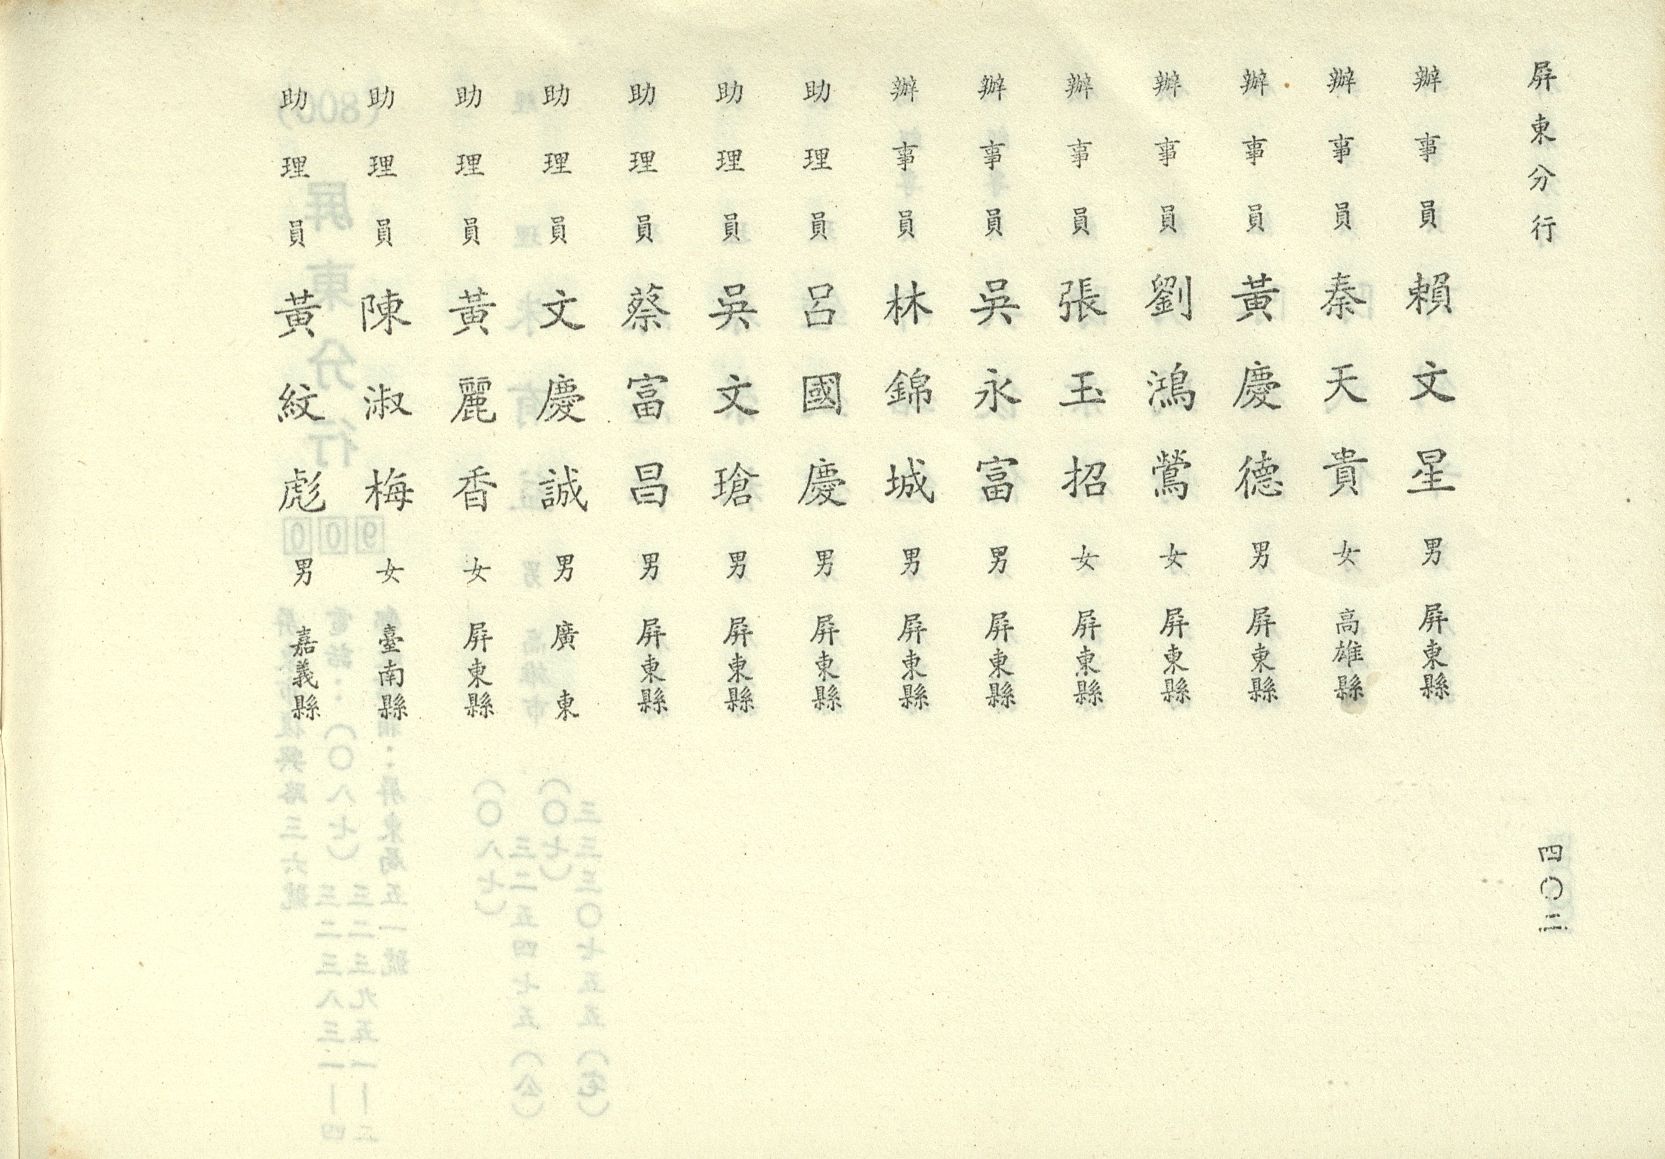 屏東分行
四〇二
辦事員 賴文星 男 屏東縣
辦事員 秦天貴 女 高雄縣
辦事員 黃慶德 男 屏東縣
辦事員 劉鴻鶯 女 屏東縣
辦事員 張玉招 女 屏東縣
辦事員 吳永富 男 屏東縣
辦事員 林錦城 男 屏東縣
助理員 呂國慶 男 屏東縣
助理員 吳文瑲 男 屏東縣
助理員 蔡富昌 男 屏東縣
助理員 文慶誠 男 廣東
助理員 黃麗香 女 屏東縣
助理員 陳淑梅 女 臺南縣
助理員 黃紋彪 男 嘉義縣